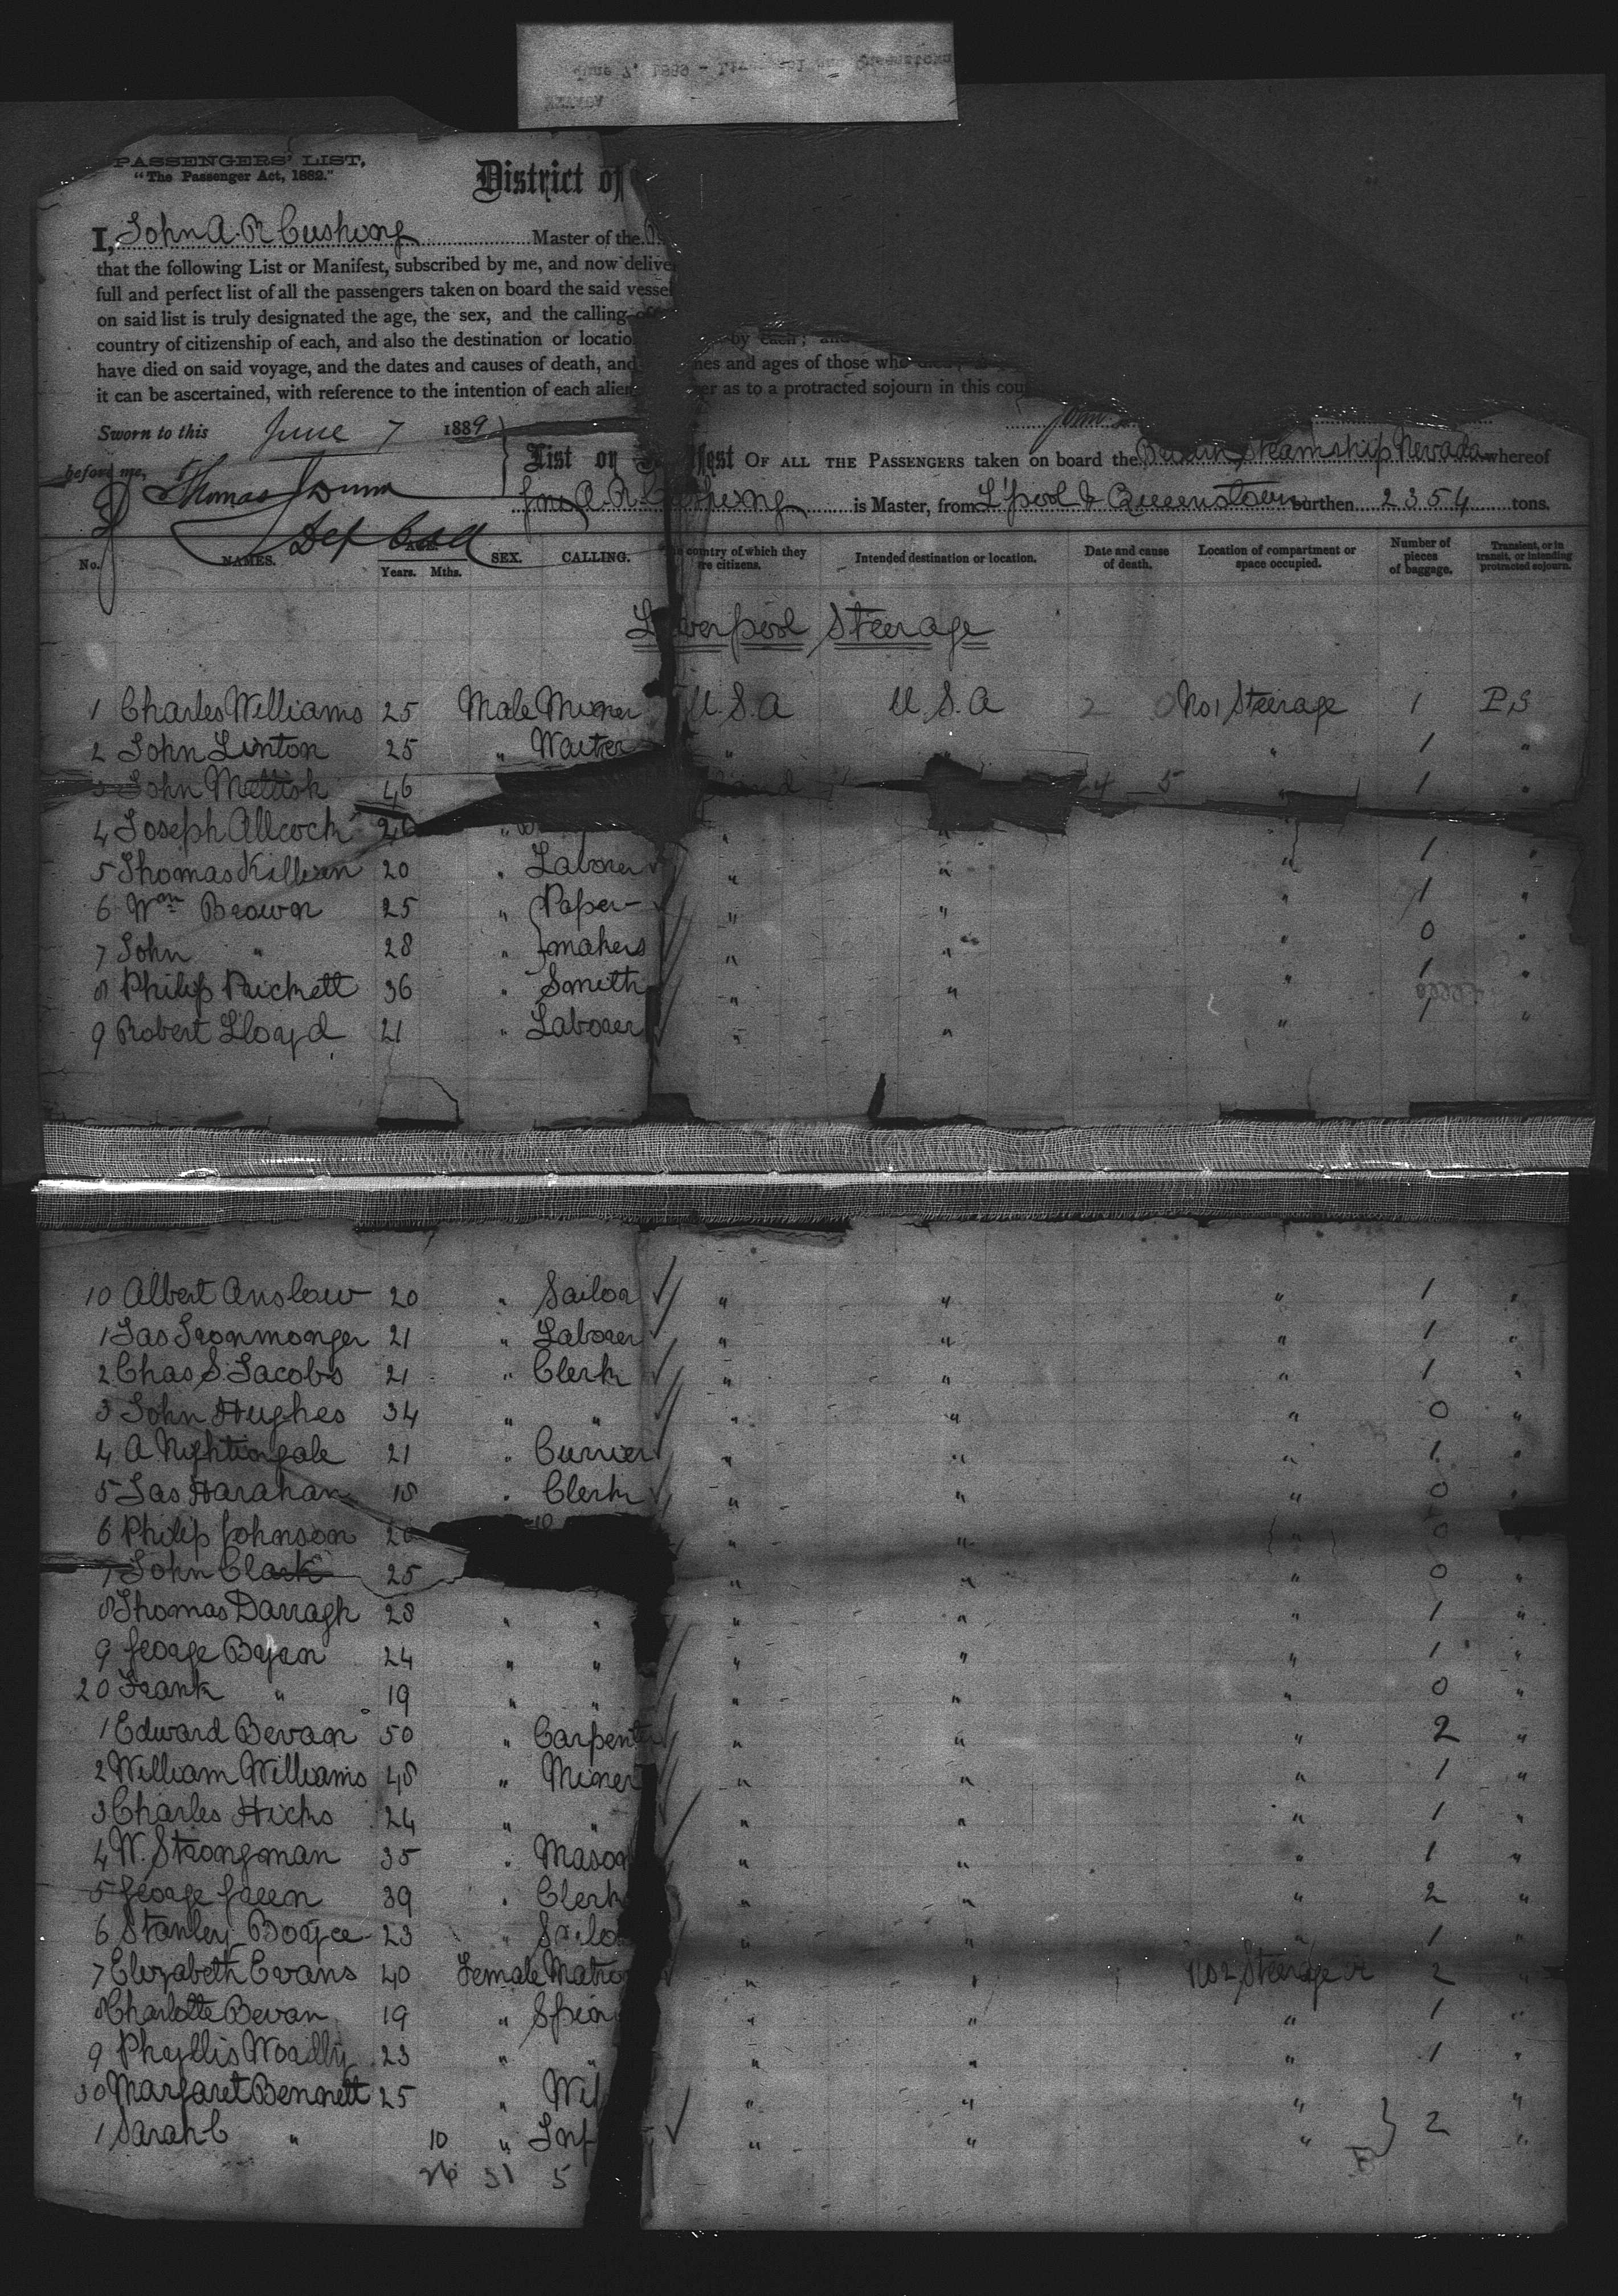 PASSENGERS' LIST,
"The Passenger Act, 1882."
District of
I, John A. R Cushing Master of the
that the following List or Manifest, subscribed by me, and now delive
full and perfect list of all the passengers taken on board the said vessel
on said list is truly designated the age, the sex, and the calling of
country of citizenship of each, and also the destination or locatio by each; and
have died on said voyage, and the dates and causes of death, and mes and ages of those who died
it can be ascertained, with reference to the intention of each alien er as to a protracted sojourn in this cou
Sworn to this June 7 1889
before me, Thomas Dunn
Dep Coll
List or fest OF ALL THE PASSENGERS taken on board the British Steamship Nevada whereof
Jno A. R. Cushing is Master, from L'pool & Queenstown burthen 2354 tons.
No. NAMES. Years. Mths. SEX. CALLING. country of which they are citizens. Intended destination or location. Date and cause of death. Location of compartment or space occupied. Number of pieces of baggage. Transient, or in transit, or intending protracted sojourn.
Liverpool Steerage
1 Charles Williams 25 Male Miner U.S.A U.S.A No 1 Steerage 1 P.S
2 John Linton 25 " Waiter " " " 1 "
3 John Mettish 46 " 1 "
4 Joseph Allcock " " "
5 Thomas Killeen 20 " Laborer " " " 1 "
6 Wm Brown 25 " Paper- " " " 1 "
7 John " 28 " makers " " " 0 "
8 Philip Prickett 36 " Smith " " " 1 "
9 Robert Lloyd 21 " Laborer " " " 1 "
10 Albert Anslow 20 " Sailor " " " 1 "
1 Jas Ironmonger 21 " Laborer " " " 1 "
2 Chas S. Jacobs 21 " Clerk " " " 1 "
3 John Hughes 34 " " " " " 0 "
4 A Nightingale 21 " Currier " " " 1 "
5 Jas Harahan 18 " Clerk " " " 0 "
6 Philip Johnson " " " 0
7 John Clark 25 " " " 0 "
8 Thomas Darragh 28 " " " " " 1 "
9 George Bryan 24 " " " " " 1 "
20 Frank " 19 " " " " " 0 "
1 Edward Bevan 50 " Carpente " " " 2 "
2 William Williams 48 " Miner " " " 1 "
3 Charles Hicks 24 " " " " " 1 "
4 W. Strongman 35 " Mason " " " 1 "
5 George Green 39 " Clerk " " " 2 "
6 Stanley Boyce 23 " Sailo " " " 1 "
7 Elizabeth Evans 40 Female Matro " " No 2 Steerage 2 "
8 Charlotte Bevan 19 " Spin " " " 1 "
9 Phyllis Woadly 23 " " " " " 1 "
30 Margaret Bennett 25 " Wif " " " "
1 Sarah C " 10 " Inf " " " 2 "
26 31 5